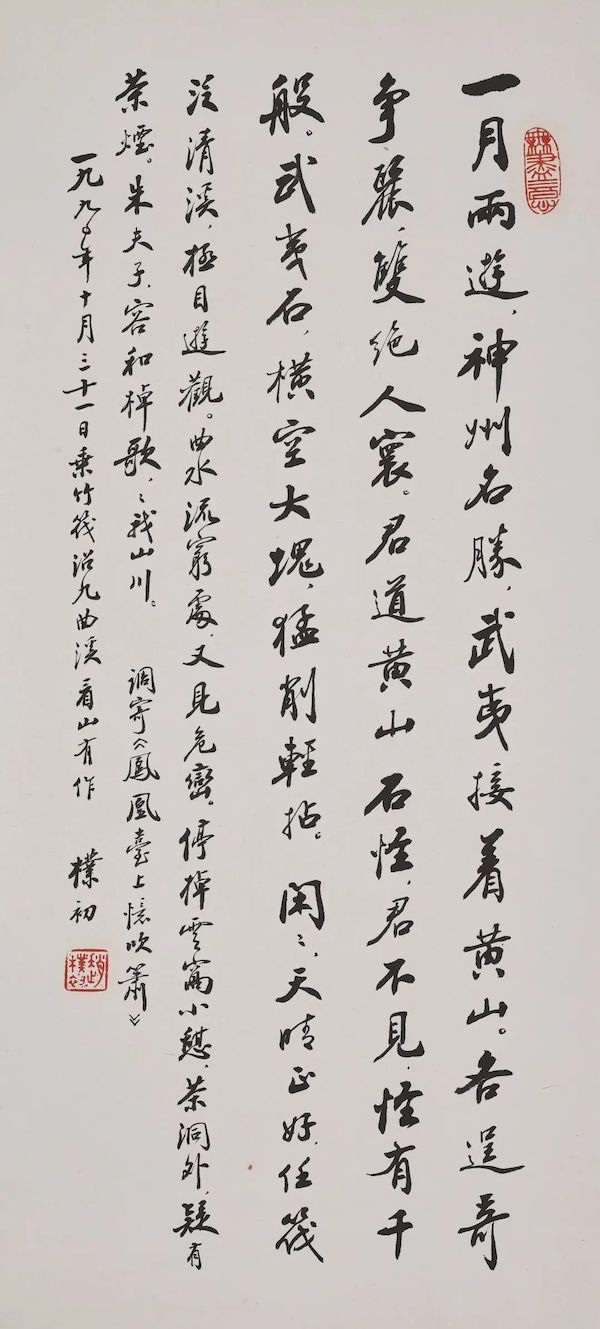 一月兩遊，神州名勝，武夷接着黄山。各逞奇
争麗，雙绝人寰。君道黄山石怪，君不見，怪有千
般。武夷石，橫空大塊，猛削輕拈。閑〻，天晴正好，任筏
泛清溪，極目遊觀。曲水流窮處，又見危巒。停棹雲窩小憩，茶洞外，疑有
茶煙。朱夫子，容和棹歌，〻我山川。 調寄《鳳凰臺上憶吹簫》
一九九〇年十月三十一日乘竹筏沿九曲溪看山有作 樸初
無盡意
趙樸初